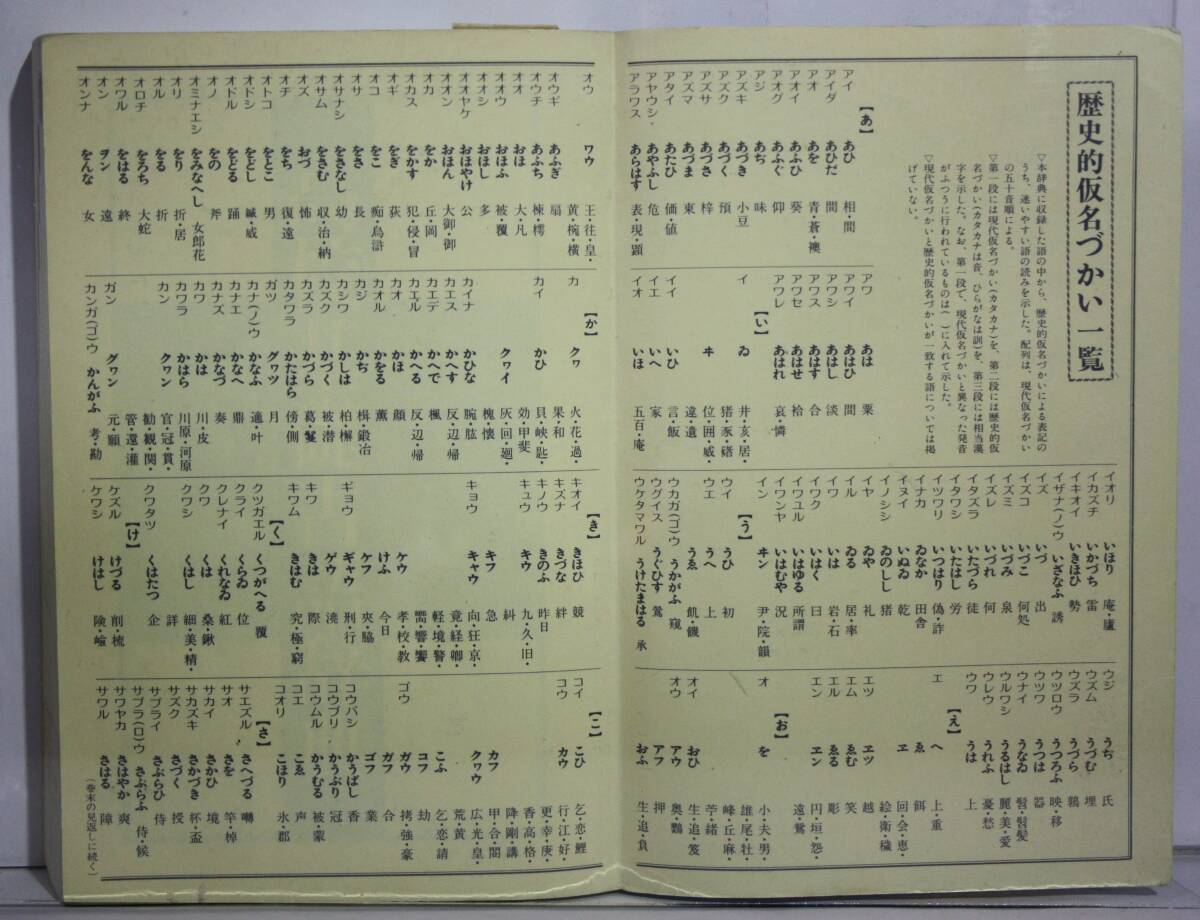 歴史的仮名づかい一覧
▽本辞典に収録した語の中から、歴史的仮名づかいによる表記の
うち、迷いやすい語の読みを示した。配列は、現代仮名づかい
の五十音順による。
▽第一段には現代仮名づかい(カタカナ)を、第二段には歴史的仮
名づかい(カタカナは音、ひらがなは訓)を、第三段には相当漢
字を示した。なお、第一段で、現代仮名づかいと異なった発音
がふつうに行われているものは( )に入れて示した。
▽現代仮名づかいと歴史的仮名づかいが一致する語については掲
げていない。
【あ】
アイ あひ 相・間
アイダ あひだ 間
アオ あを 青・蒼・襖
アオイ あふひ 葵
アオグ あふぐ 仰
アジ あぢ 味
アズキ あづき 小豆
アズク あづく 預
アズサ あづさ 梓
アズマ あづま 東
アタイ あたひ 価・値
アヤウシ あやふし 危
アラワス あらはす 表・現・顕
アワ あは 粟
アワイ あはひ 間
アワシ あはし 淡
アワス あはす 合
アワセ あはせ 袷
アワレ あはれ 哀・憐
【い】
イ ゐ 井・亥・居・
猪・豕・礒
ヰ 位・囲・威・
違・遺
イイ いひ 言・飯
イエ いへ 家
イオ いほ 五百・庵
イオリ いほり 庵・廬
イカズチ いかづち 雷
イキオイ いきほひ 勢
イザナ(ノ)ウ いざなふ 誘
イズ いづ 出
イズコ いづこ 何処
イズミ いづみ 泉
イズレ いづれ 何
イタズラ いたづら 徒
イタワシ いたはし 労
イツワリ いつはり 偽・詐
イナカ ゐなか 田舎
イヌイ いぬゐ 乾
イノシシ ゐのしし 猪
イヤ ゐや 礼
イル ゐる 居・率
イワ いは 岩・石
イワク いはく 曰
イワユル いはゆる 所謂
イワンヤ いはむや 況
イン ヰン 尹・院・韻
【う】
ウイ うひ 初
ウエ うへ 上
うゑ 飢・饑
ウカガ(ゴ)ウ うかがふ 窺
ウグイス うぐひす 鶯
ウケタマワル うけたまはる 承
ウジ うぢ 氏
ウズム うづむ 埋
ウズラ うづら 鶉
ウツロウ うつろふ 映・移
ウツワ うつは 器
ウナイ うなゐ 髫・髫髪
ウルワシ うるはし 麗・美・愛
ウレウ うれふ 憂・愁
ウワ うは 上
【え】
エ へ 上・重
ゑ 餌
ヱ 回・会・恵・
絵・衛・穢
エツ ヱツ 越
エム ゑむ 笑
エル ゑる 彫
エン ヱン 円・垣・怨・
遠・鴛
【お】
オ を 小・夫・男・
雄・尾・牡・
峰・丘・麻・
苧・緒
オイ おひ 生・追・笈
オウ アウ 奥・鸚
アフ 押
おふ 生・追・負
オウ ワウ 王・往・皇・
黄・椀・横
オウギ あふぎ 扇
オウチ あふち 楝・樗
オオ おほ 大・凡
オオウ おほふ 被・覆
オオシ おほし 多
オオヤケ おほやけ 公
オオン おほん 大御・御
オカ をか 丘・岡
オカス をかす 犯・侵・冒
オギ をぎ 荻
オコ をこ 痴・烏滸
オサ をさ 長
オサナシ をさなし 幼
オサム をさむ 収・治・納
オズ おづ 怖
オチ をち 復・遠
オトコ をとこ 男
オドシ をどし 縅・威
オドル をどる 踊
オノ をの 斧
オミナエシ をみなへし 女郎花
オリ をり 折・居
オル をる 折
オロチ をろち 大蛇
オワル をはる 終
オン ヲン 遠
オンナ をんな 女
【か】
カ クヮ 火・花・過・
果・和
カイ かひ 貝・峡・匙・
効・甲斐
クヮイ 灰・回・廻・
槐・懐
カイナ かひな 腕・肱
カエス かへす 反・辺・帰
カエデ かへで 楓
カエル かへる 反・辺・帰
カオ かほ 顔
カオル かをる 薫
カジ かぢ 楫・鍛冶
カシワ かしは 柏・槲
カズク かづく 被・潜
カズラ かづら 葛・鬘
カタワラ かたはら 傍・側
ガツ グヮツ 月
カナ(ノ)ウ かなふ 適・叶
カナエ かなへ 鼎
カナズ かなづ 奏
カワ かは 川・皮
カワラ かはら 川原・河原
カン クヮン 官・冠・貫・
勧・観・関・
管・還・灌
ガン グヮン 元・願
カンガ(ゴ)ウ かんがふ 考・勘
【き】
キオイ きほひ 競
キズナ きづな 絆
キノウ きのふ 昨日
キュウ キウ 九・久・旧・
糾
キフ 急
キョウ キャウ 向・狂・京・
竟・経・卿・
軽・境・警・
嚮・響・饗
ケウ 孝・校・教
けふ 今日
ケフ 夾・脇
ギョウ ギャウ 刑・行
ゲウ 澆
キワ きは 際
キワム きはむ 究・極・窮
【く】
クツガエル くつがへる 覆
クライ くらゐ 位
クレナイ くれなゐ 紅
クワ くは 桑・鍬
クワシ くはし 細・美・精・
詳
クワタツ くはたつ 企
【け】
ケズル けづる 削・梳
ケワシ けはし 険・嶮
【こ】
コイ こひ 乞・恋・鯉
コウ カウ 行・江・好・
更・幸・庚・
香・高・格・
降・剛・講
カフ 甲・合・閤
クヮウ 広・光・皇・
荒・黄
こふ 乞・恋・請
コフ 劫
ゴウ ガウ 拷・強・豪
ガフ 合
ゴフ 業
コウバシ かうばし 香
コウブリ かうぶり 冠
コウムル かうむる 被・蒙
コエ こゑ 声
コオリ こほり 氷・郡
【さ】
サエズル さへづる 囀
サオ さを 竿・棹
サカイ さかひ 境
サカズキ さかづき 杯・盃
サズク さづく 授
サブライ さぶらひ 侍
サブラ(ロ)ウ さぶらふ 侍・候
サワヤカ さはやか 爽
サワル さはる 障
(巻末の見返しに続く)